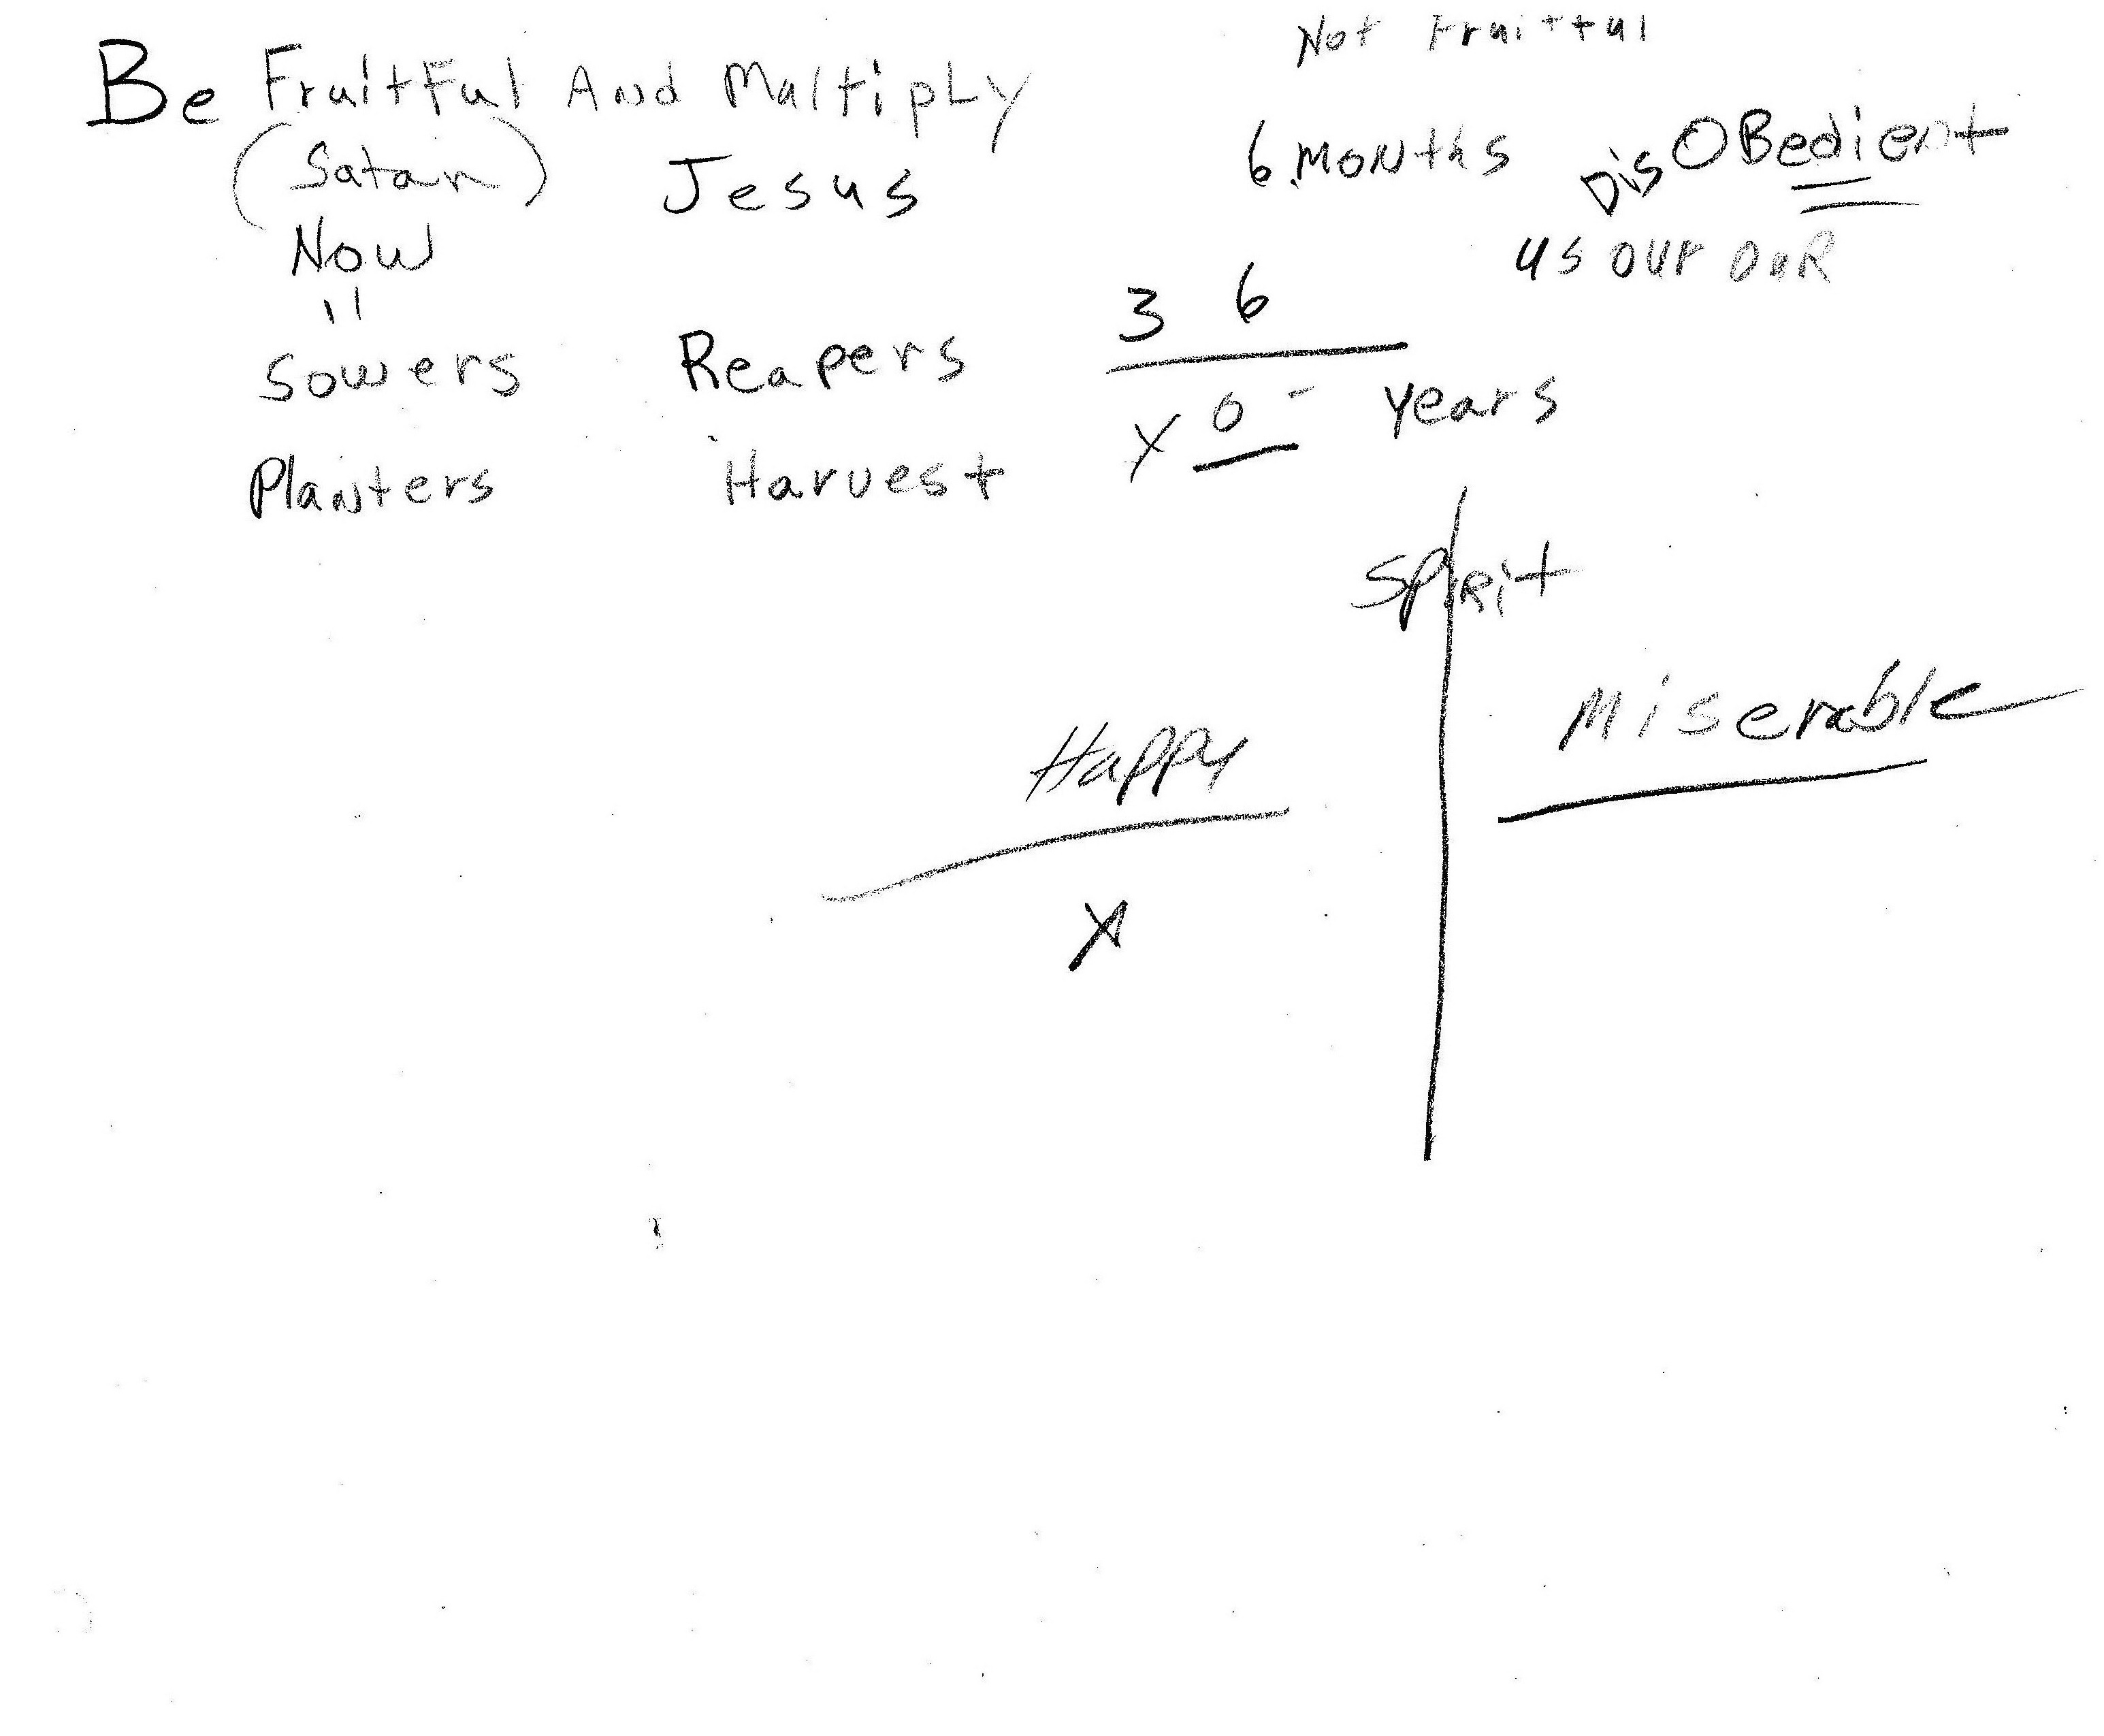 Not Fruitful
Be Fruitful And Multiply
6 months DisOBedient
(Satan) Jesus
Now us our our
"
3 6
Sowers Reapers
x 0 - years
Planters Harvest
Spirit
Happy Miserable
x